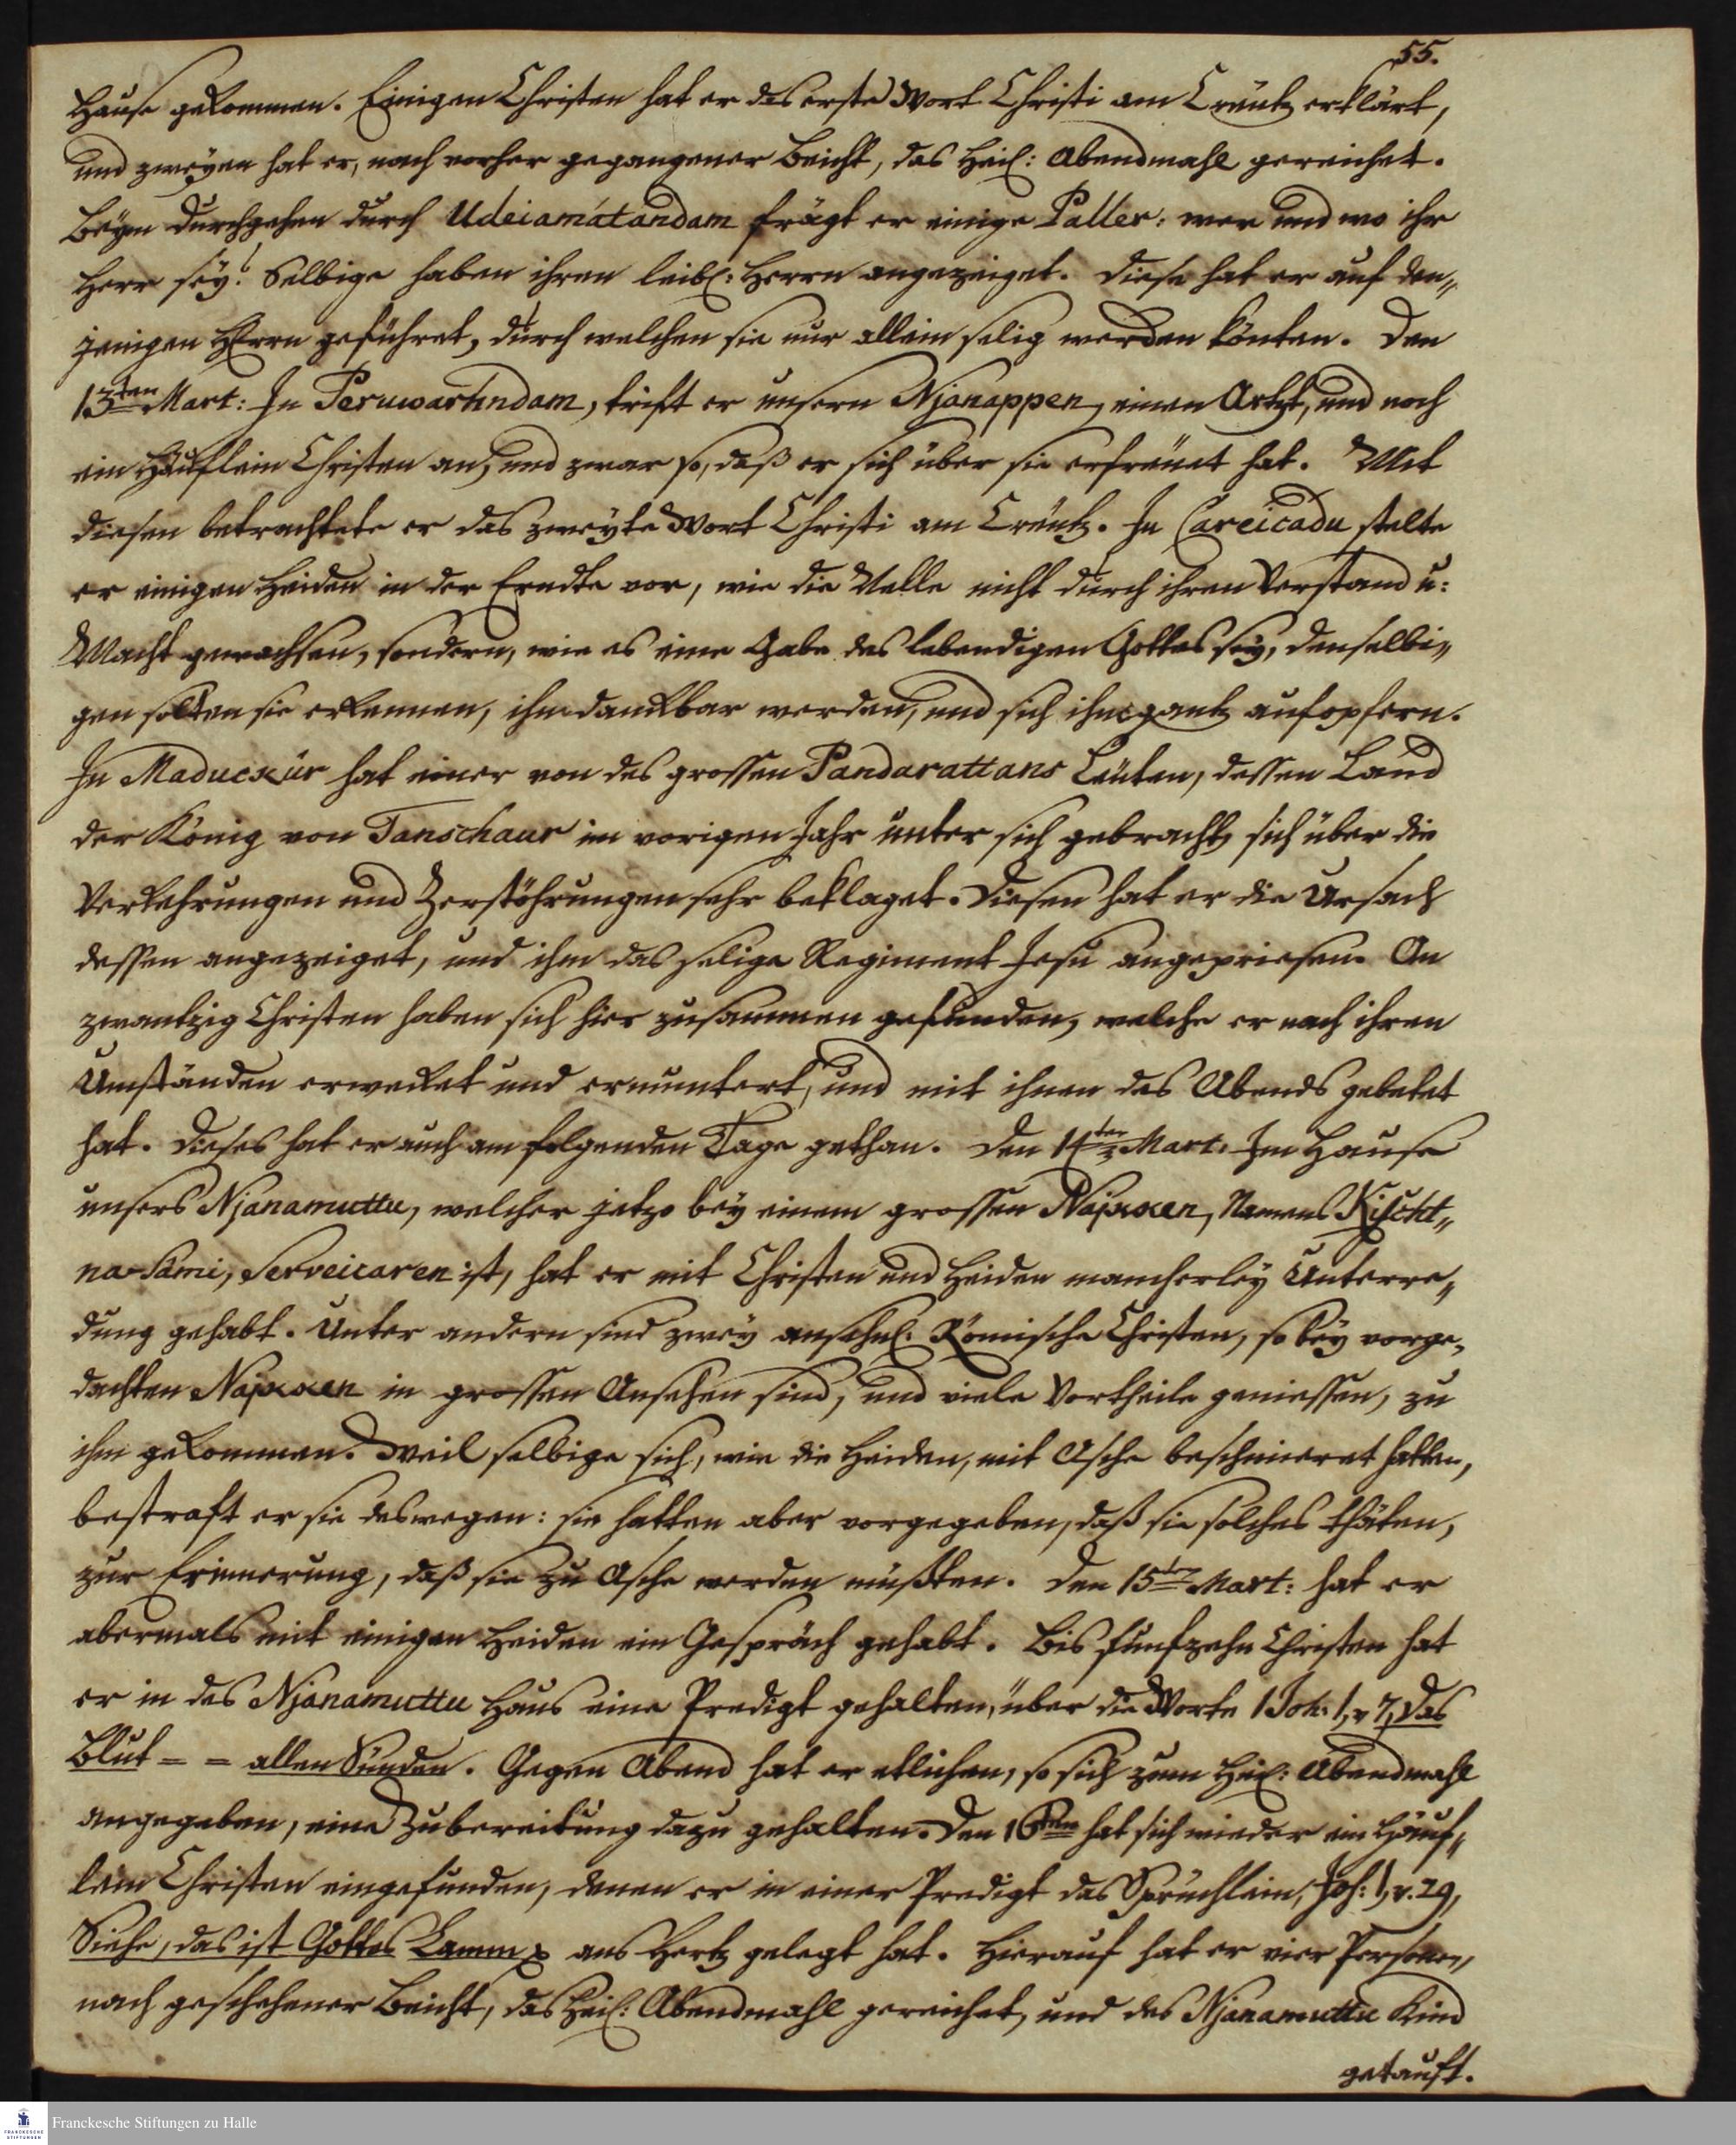 55.
Hause gekommen. Einigen Christen hat er das erste Wort Christi am Creutz erklärt,
und zweyen hat er, nach vorher gegangener Beicht, das Heil: Abendmahl gereichet.
Beym Durchgehen durch Udeiamátandam frägt er einige Paller: wer und wo ihr
Herr sey? Selbige haben ihren leibl: Herrn angezeiget. Diese hat er auf den„
jenigen HErrn geführet, durch welchen sie nur allein selig werden könten. Den
13ten Mart: In Peruwartindam, trift er unsern Njanappen, einen Artzt, und noch
ein Häuflein Christen an, und zwar so, daß er sich über sie erfreuet hat. Mit
diesen betrachtete er das zweyte Wort Christi am Creutz. In Careicadu stelte
er einigen Heiden in der Erndte vor, wie die Nelle nicht durch ihren Verstand u:
Macht gewachsen, sondern, wie es eine Gabe des lebendigen Gottes sey, denselbi„
gen solten sie erkennen, ihm dankbar werden, und sich ihm gantz aufopfern.
In Maduckúr hat einer von des grossen Pandarattans Leuten, dessen Land
der König von Tanschaur im vorigen Jahr unter sich gebracht, sich über die
Verkehrungen und Zerstöhrungen sehr beklaget. Diesen hat er die Ursach
dessen angezeiget, und ihm das selige Regiment Jesu angepriesen. An
zwantzig Christen haben sich hier zusammen gefunden, welche er nach ihren
Umständen erwecket und ermuntert, und mit ihnen des Abends gebetet
hat. Dieses hat er auch am folgenden Tage gethan. Den 14ten Mart: Im Hause
unsers Njanamuttu, welcher jetzo bey einem grossen Najxxen, Namens Kischt„
na-Sámi, Serveicaren ist, hat er mit Christen und Heiden mancherley Unterre„
dung gehabt. Unter andern sind zwey ansehnl: Römische Christen, so bey vorge„
dachten Najxxen in grossen Ansehen sind, und viele Vortheile geniessen, zu
ihm gekommen. Weil selbige sich, wie die Heiden, mit Asche beschmieret hatten,
bestraft er sie deswegen: sie hatten aber vorgegeben, daß sie solches thäten,
zur Erinnerung, daß sie zu Asche werden müßten. Den 15ten Mart: hat er
abermals mit einigen Heiden ein Gespräch gehabt. Bis funfzehn Christen hat
er in des Njanamuttu Haus eine Predigt gehalten, über die Worte 1 Joh: 1, v 7, Das
Blut = = allen Sünden. Gegen Abend hat er etlichen, so sich zum Heil: Abendmahl
angegeben, eine Zubereitung dazu gehalten. Den 16ten hat sich wieder ein Häuf„
lein Christen eingefunden, denen er in einer Predigt das Sprüchlein, Joh: 1, v. 29,
Siehe, das ist Gottes Lamm ans Hertz gelegt hat. Hierauf hat er vier Personen,
nach geschehener Beicht, das Heil: Abendmahl gereichet, und des Njanamuttu Kind
getauft.
Franckesche Stiftungen zu Halle
FRANCKESCHE
STIFTUNGEN